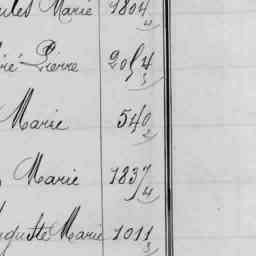 ules Marie 1804
4
ré Pierre 2054
3
Marie 540
2
Marie 1837
4
uguste Marie 1011
3